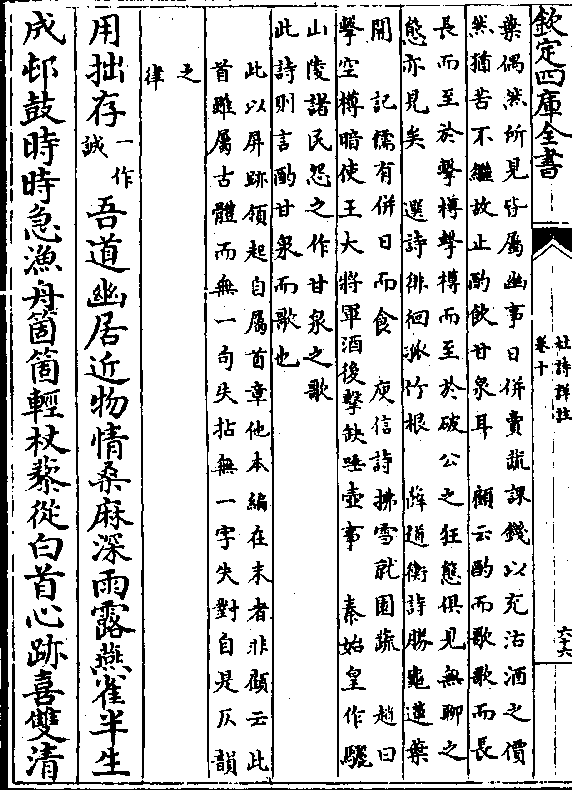 欽定四庫全書
杜詩詳註
卷十
六十六
葉偶然所見皆屬幽事日併賣蔬課錢以充沽酒之價
然猶苦不繼故止酌飲甘泉耳　顧云酌而歌歌而長
長而至於擊樽擊樽而至於破公之狂態俱見無聊之
態亦見矣　選詩徘徊孤竹根　薛道衡詩勝龜蓮葉
開　記儒有併日而食　庾信詩拂雪就園蔬　趙曰
擊空樽暗使王大將軍酒後擊缺唾壺事　秦始皇作驪
山陵諸民怨之作甘泉之歌
此詩則言酌甘泉而歌也
此以屏跡領起自屬首章他本編在末者非顧云此
首雖屬古體而無一句失拈無一字失對自是仄韻
之
律
用拙存一作
誠吾道幽居近物情桑麻深雨露燕雀半生
成邨鼓時時急漁舟箇箇輕杖藜從白首心跡喜雙清